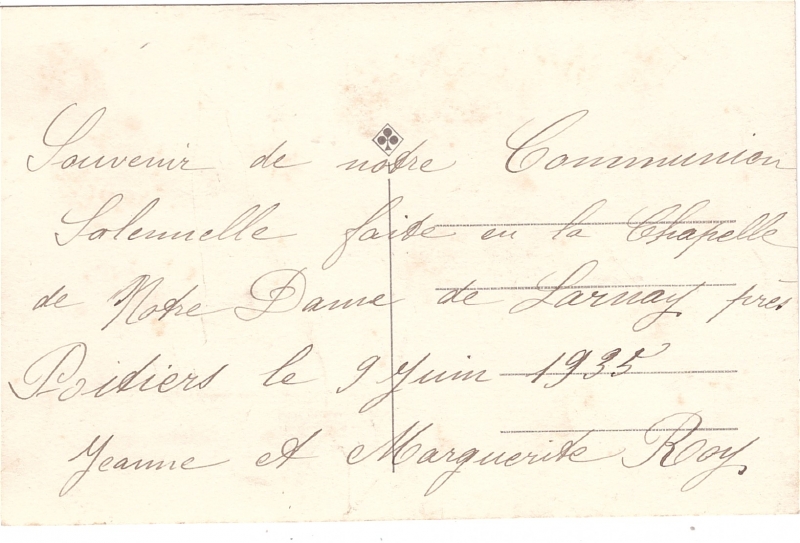 Souvenir de notre Communion
Solennelle faite en la Chapelle
de Notre Dame de Larnay près
Poitiers le 9 Juin 1935
Jeanne et Marguerite Roy